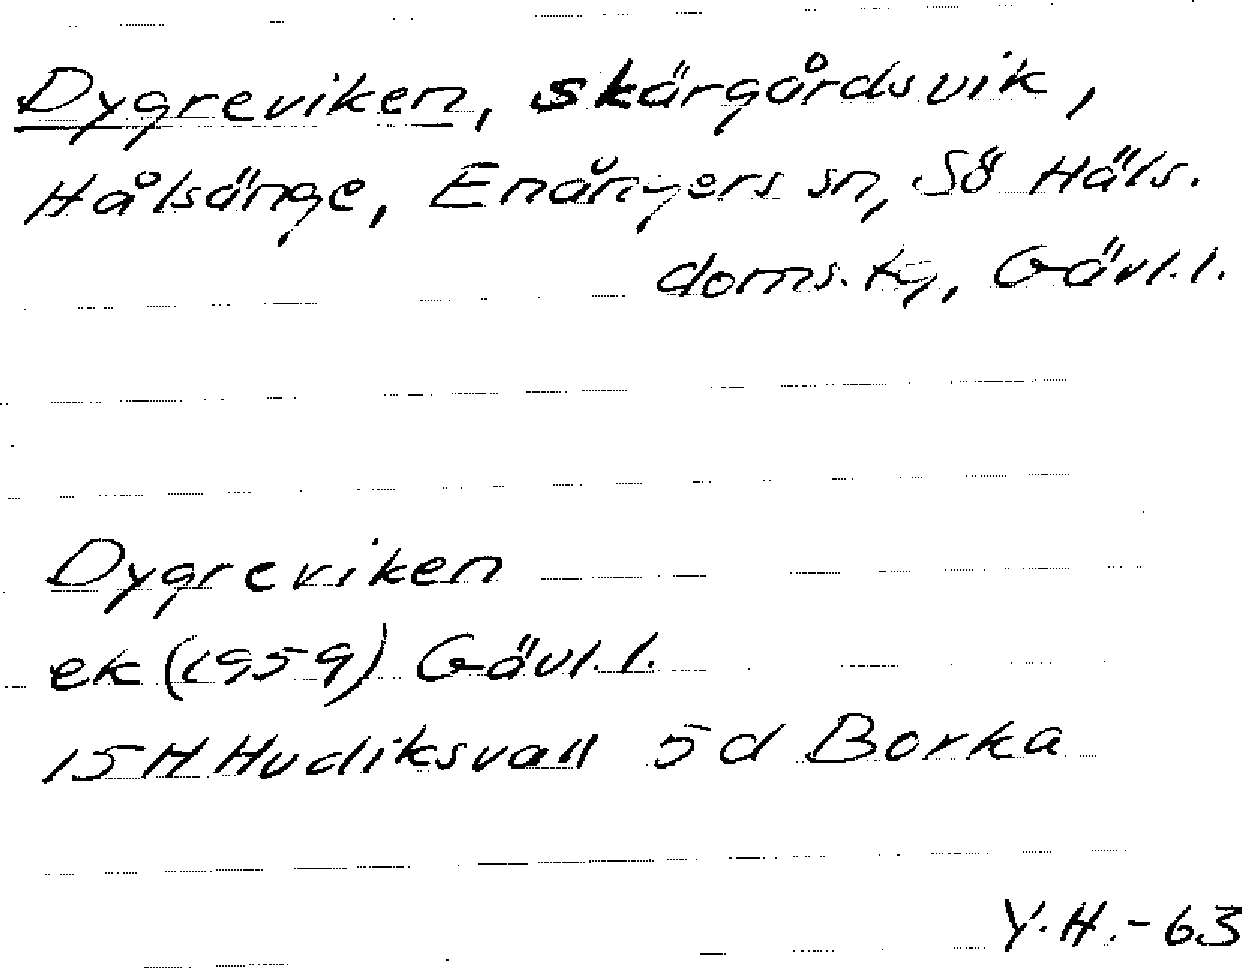 Dygreviken, skärgårdsvik,
Hålsänge, Enångers sn, Sö Häls.
doms. tg, Gävl. l.
Dygreviken
ek (1959) Gävl. l.
15H Hudiksvall 5d Borka
Y.H.-63